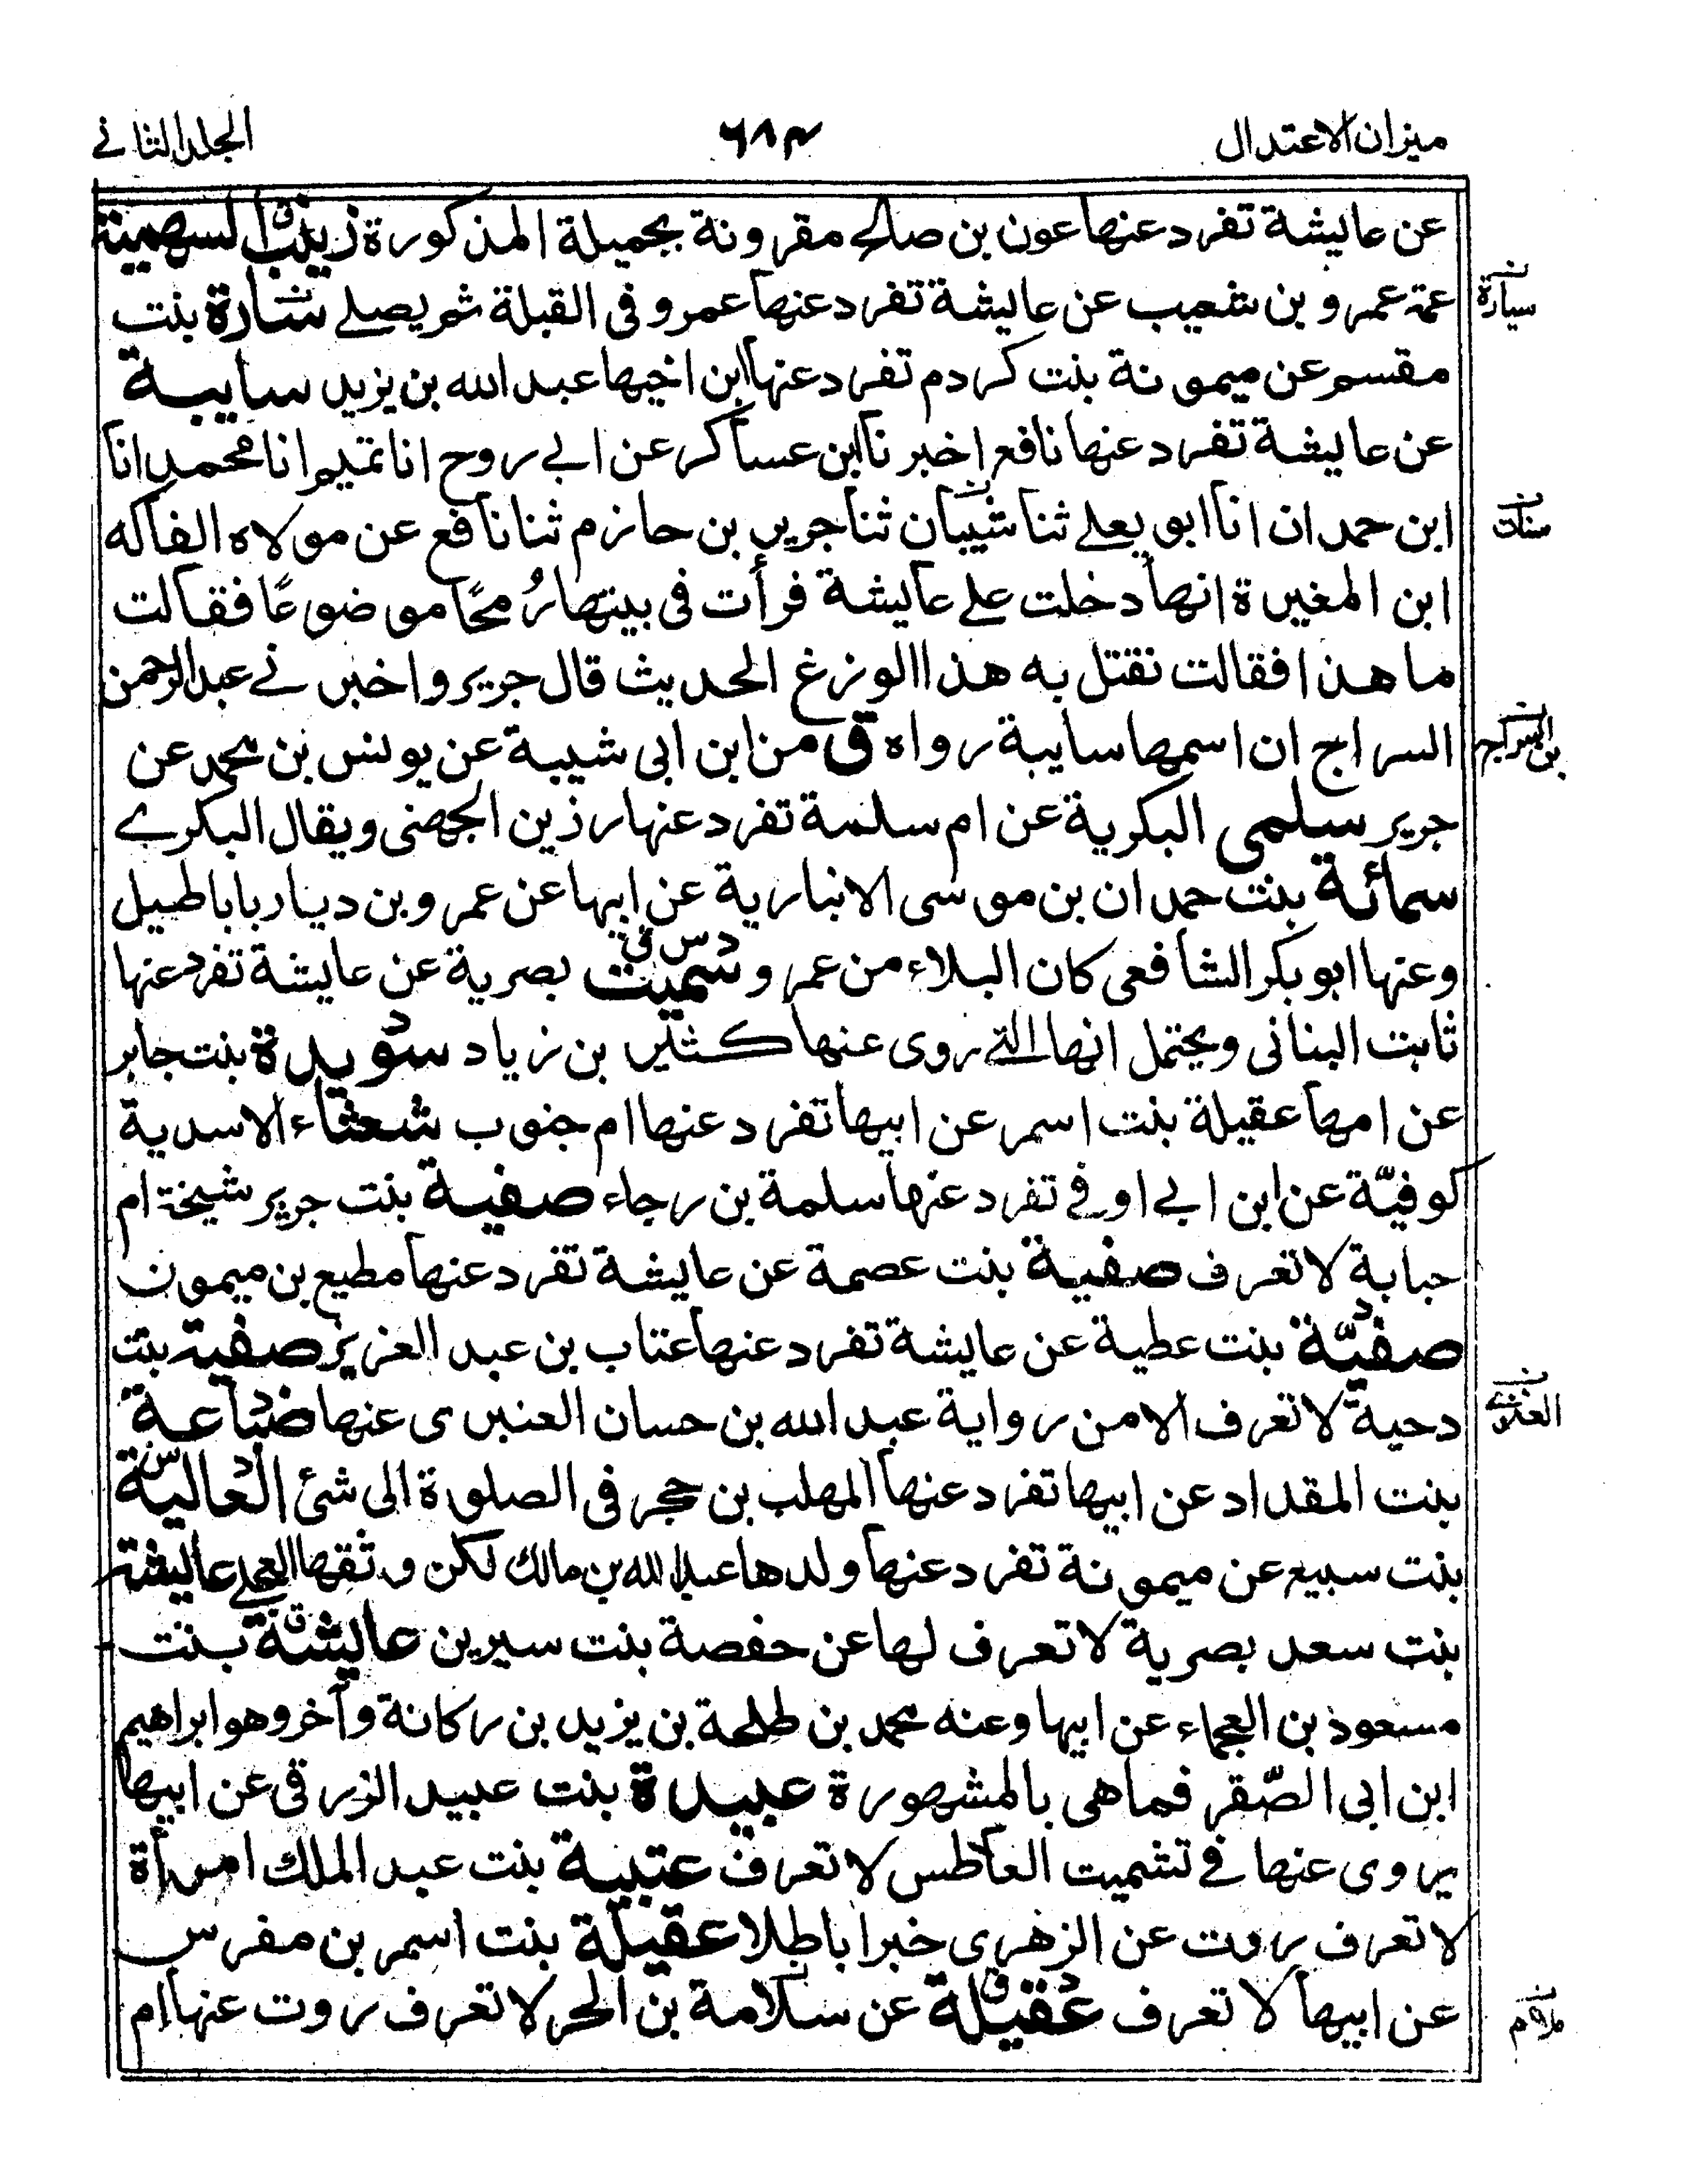 ميزان الاعتدال
٦٨٣
الجلد الثاني
عن عايشة تفرد عنها عون بن صالح مقرونة بجميلة المذكورة زينب السهمية
عمة عمرو بن شعيب عن عايشة تفرد عنها عمرو في القبلة ثم يصلے سارة بنت
سيارة
مقسم عن ميمونة بنت كردم تفرد عنها ابن اخيها عبد الله بن يزيد سايبة
عن عايشة تفرد عنها نافع اخبرنا ابن عساكر عن ابے روح انا تميم انا محمد انا
ابن حمدان انا ابو يعلے ثنا شيبان ثنا جرير بن حازم ثنا نافع عن مولاه الفاكه
ابن المغيرة انها دخلت علے عايشة فرأت فى بيتها رُمحًا موضوعًا فقالت
ما هذا فقالت نقتل به هذا الوزغ الحديث قال جرير واخبرنے عبد الرحمن
السراج ان اسمها سايبة رواه ق من ابن ابى شيبة عن يونس بن محمد عن
بن السراج
جرير سلمى البكرية عن ام سلمة تفرد عنها رزين الجهنى ويقال البكرے
سمائة بنت حمدان بن موسى الانبارية عن ابيها عن عمرو بن دينار باباطيل
وعنها ابو بكر الشافعى كان البلاء من عمرو سمية د س ق بصرية عن عايشة تفرد عنها
ثابت البنانى ويحتمل انها التے روى عنها كثير بن زياد سويدة د بنت جابر
عن امها عقيلة بنت اسمر عن ابيها تفرد عنها ام جنوب شعثاء الاسدية
كوفيّة عن ابن ابے اوفے تفرد عنها سلمة بن رجاء صفية بنت جرير شيخة ام
حبابة لا تعرف صفية بنت عصمة عن عايشة تفرد عنها مطيع بن ميمون
صفيّة د بنت عطية عن عايشة تفرد عنها عتاب بن عبد العزيز صفية بنت
دحية لا تعرف الا من رواية عبد الله بن حسان العنبرى عنها ضباعة د
بنت المقداد عن ابيها تفرد عنها المهلب بن حجر فى الصلوة الى شئ العالية د س
بنت سبيع عن ميمونة تفرد عنها ولدها عبد الله بن مالك لكن وثقها العجلے عايشة
بنت سعد بصرية لا تعرف لها عن حفصة بنت سيرين عايشة ق بنت
مسعود بن العجماء عن ابيها وعنه محمد بن طلحة بن يزيد بن ركانة وآخر وهو ابراهيم
ابن ابى الصّقر فما هى بالمشهورة عبيدة بنت عبيد الزرقى عن ابيها
يروى عنها فے تشميت العاطس لا تعرف عتبية بنت عبد الملك امرأة
لا تعرف روت عن الزهرى خبرا باطلا عقيلة بنت اسمر بن مفرس
عن ابيها لا تعرف عقيلة د ق عن سلامة بن الحر لا تعرف روت عنها ام